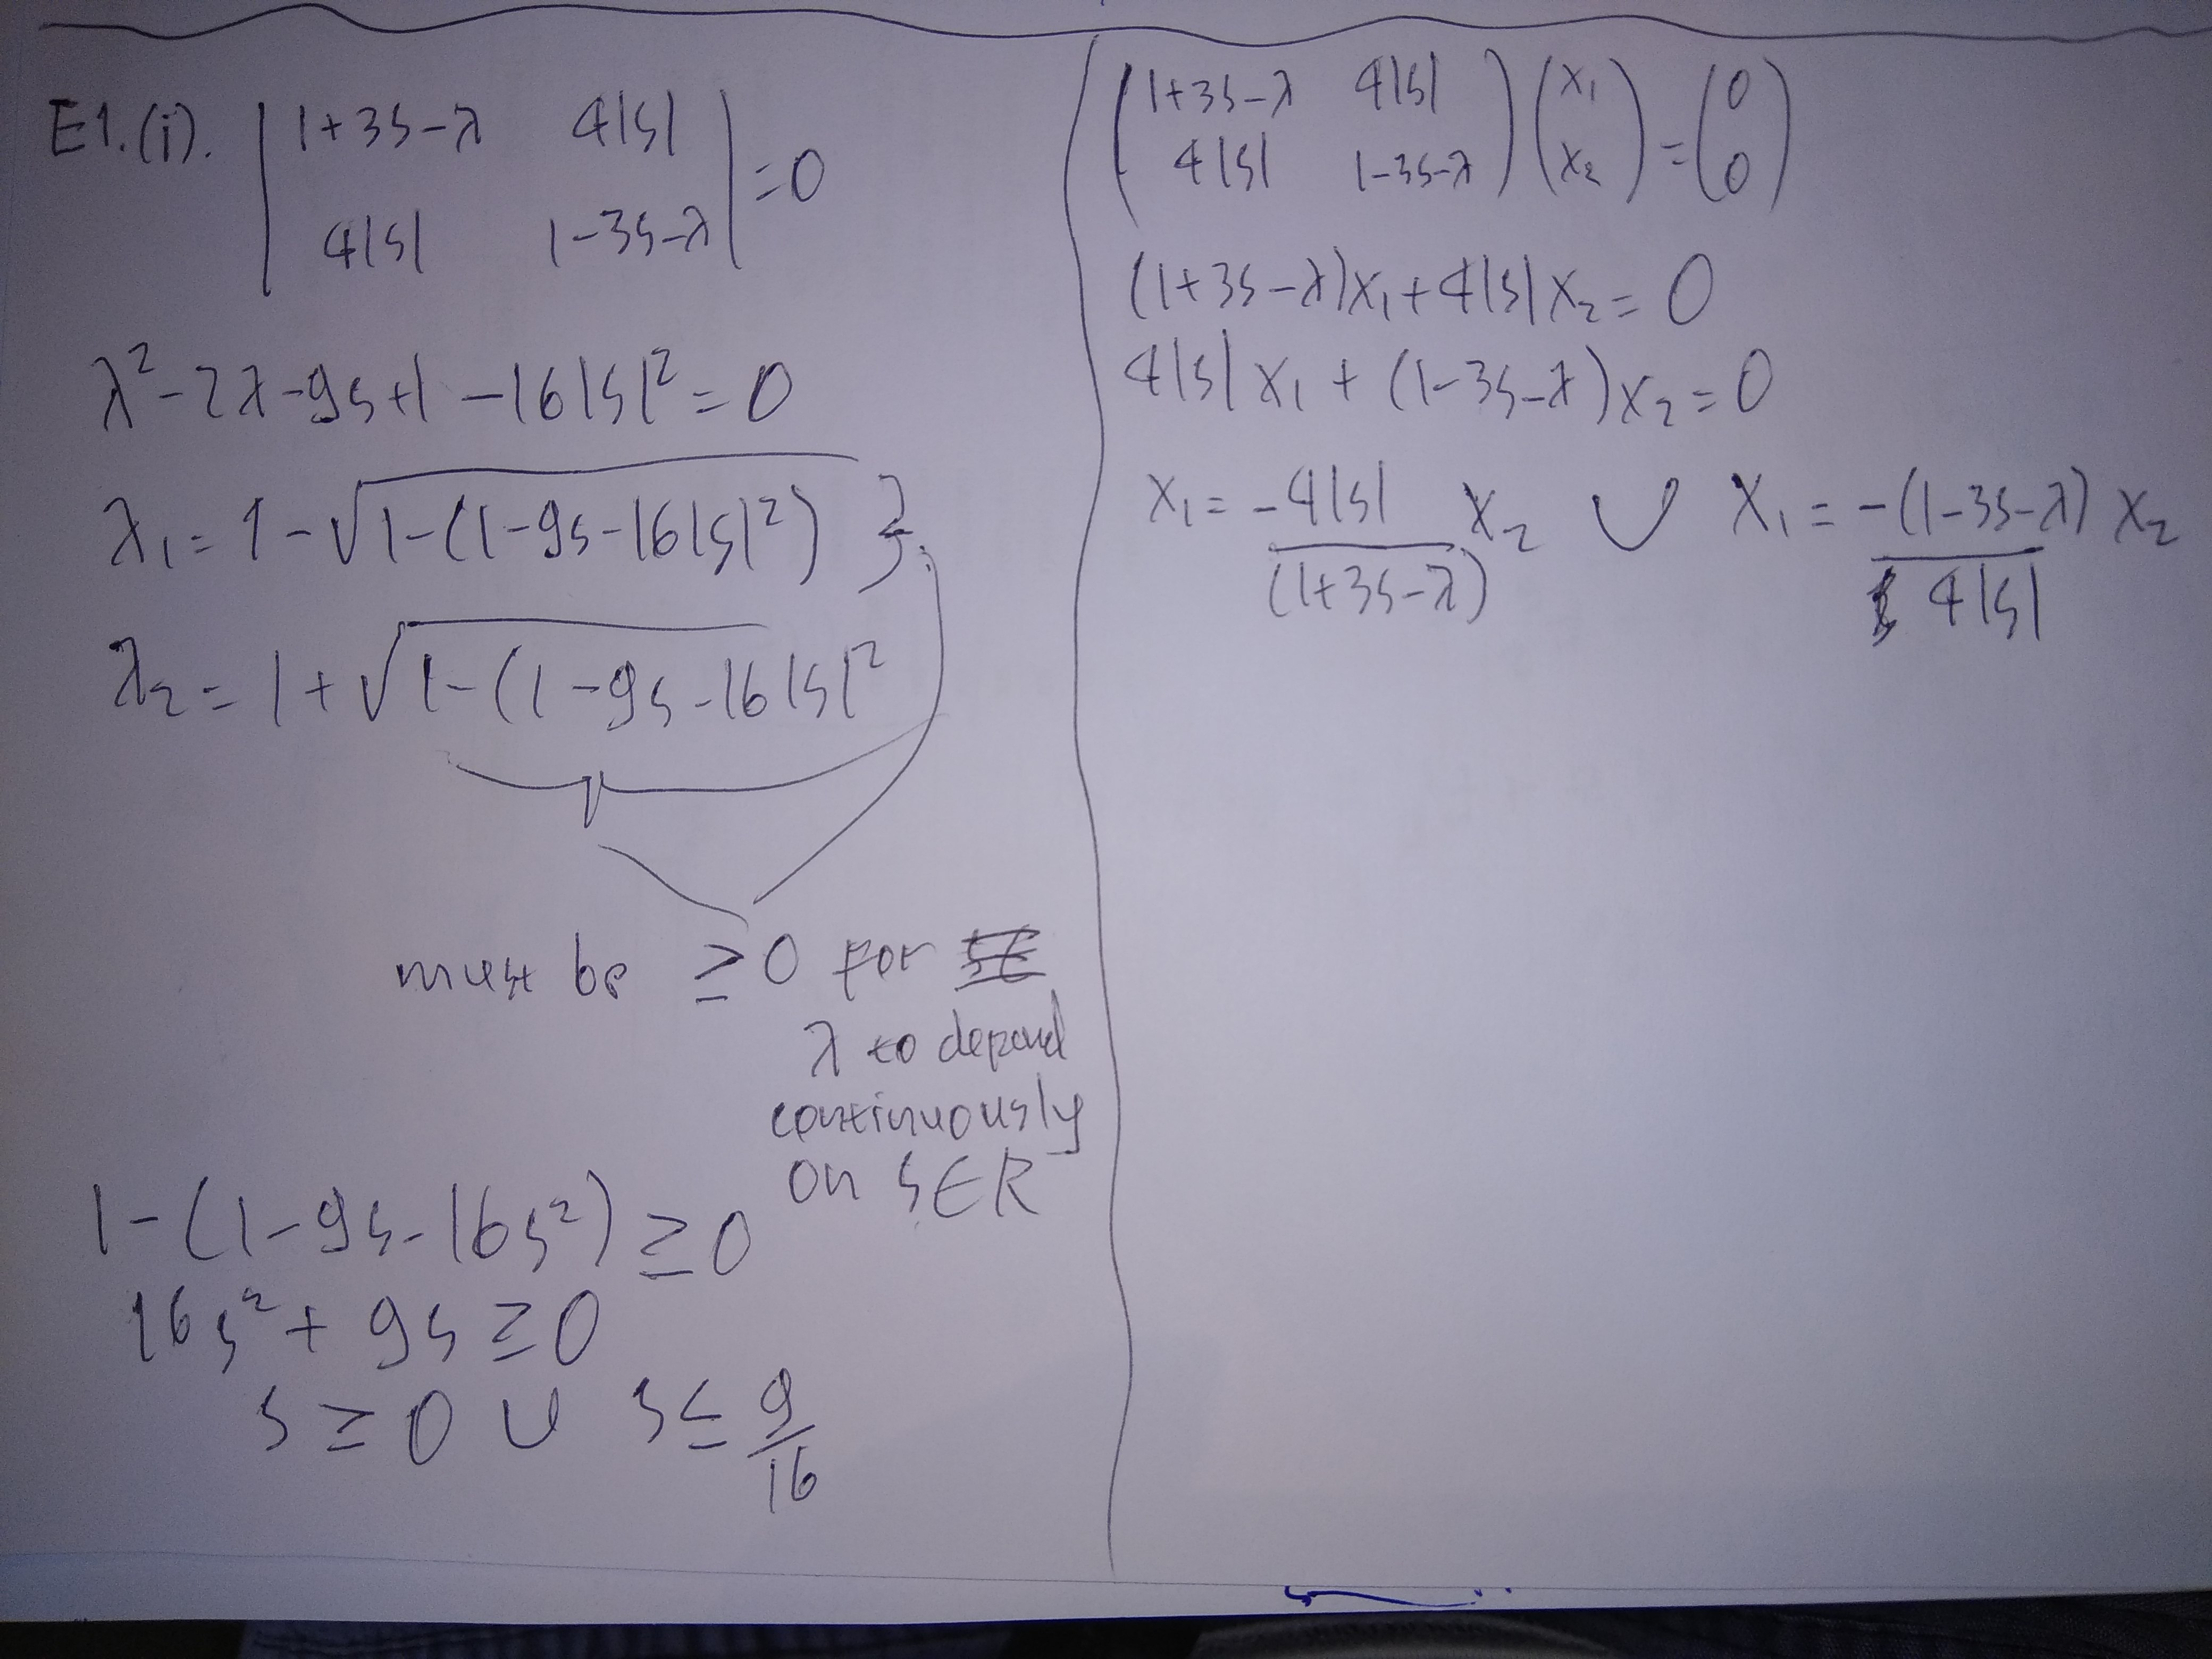 E1.(i). | 1+3s-λ 4|s| |
| 4|s| 1-3s-λ | =0
λ²-2λ-9s+1-16|s|²=0
λ₁=1-√(1-(1-9s-16|s|²) }
λ₂=1+√(1-(1-9s-16|s|²
must be ≥0 for
λ to depend
continuously
on s∈R
1-(1-9s-16s²)≥0
16s²+9s≥0
s≥0 ∪ s≤9/16
(1+3s-λ 4|s|) (x₁) = (0)
(4|s| 1-3s-λ) (x₂) (0)
(1+3s-λ)x₁+4|s|x₂=0
4|s|x₁+(1-3s-λ)x₂=0
x₁=-4|s|/(1+3s-λ) x₂ ∪ x₁=-(1-3s-λ)/4|s| x₂